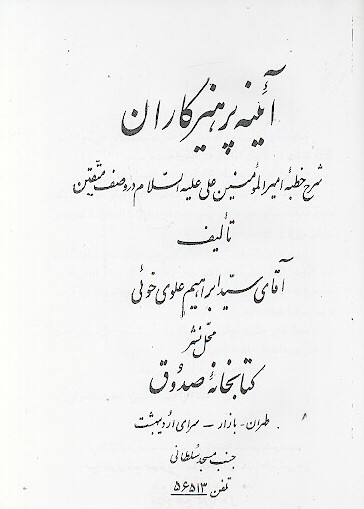 آئینه پرهیزکاران
شرح خطبهٔ امیرالمؤمنین علی علیه السلام در وصف متّقین
تألیف
آقای سیّد ابراهیم علوی خوئی
محل نشر
کتابخانهٔ صدوق
طهران - بازار - سرای اردیبهشت
جنب مسجد سلطانی
تلفن ۵۶۵۱۳